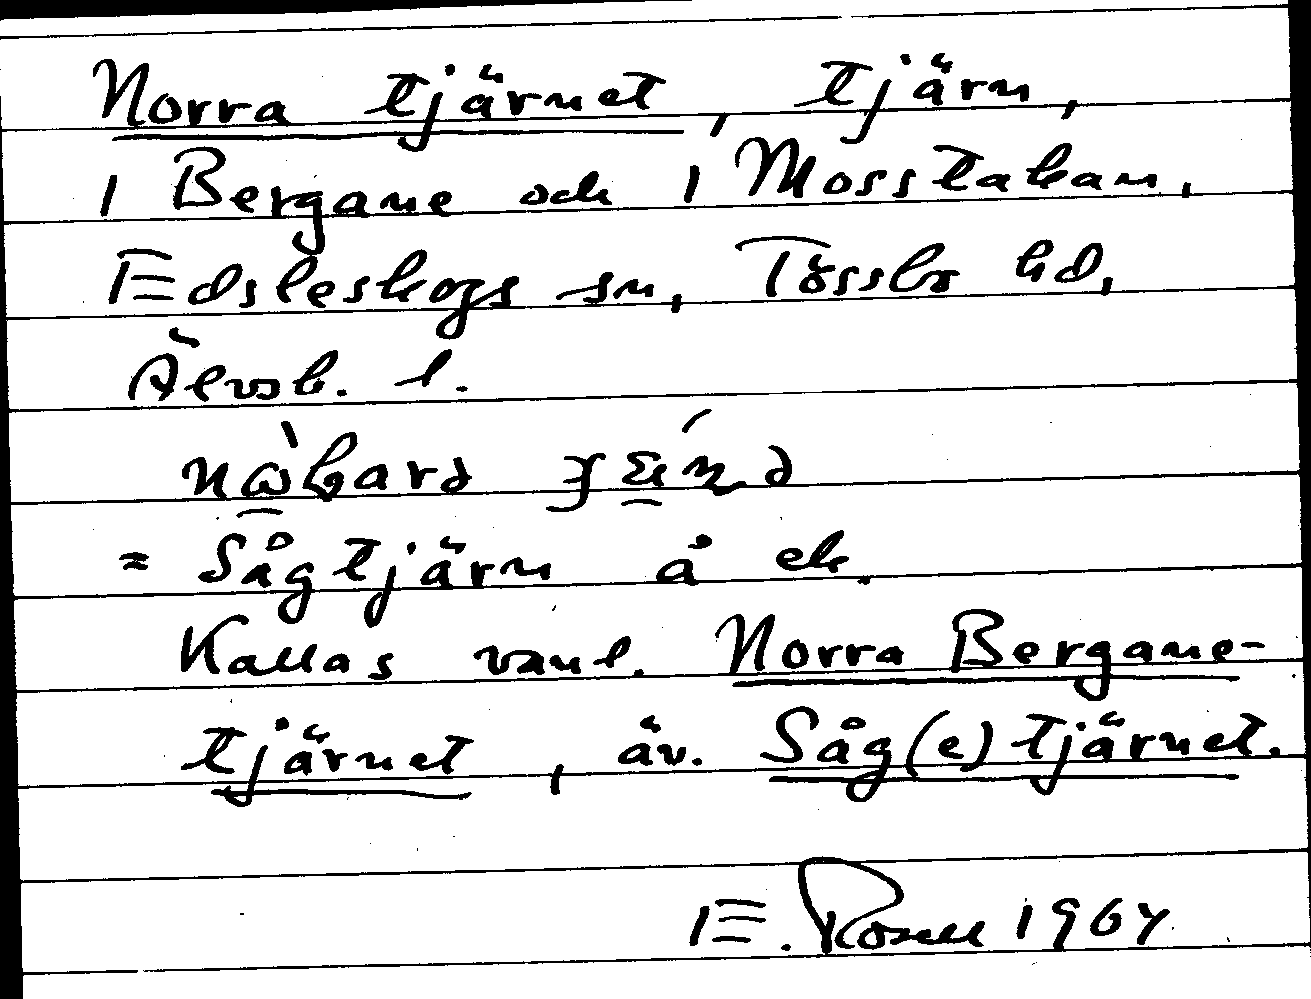 Norra tjärnet, tjärn,
i Bergane och i Mosstakan,
Edsleskogs sn, Tössbo hd,
Älvsb. l.
= Sågtjärn å ek.
Kallas vanl. Norra Bergane-
tjärnet, äv. Såg(e)tjärnet.
E. Rosell 1964